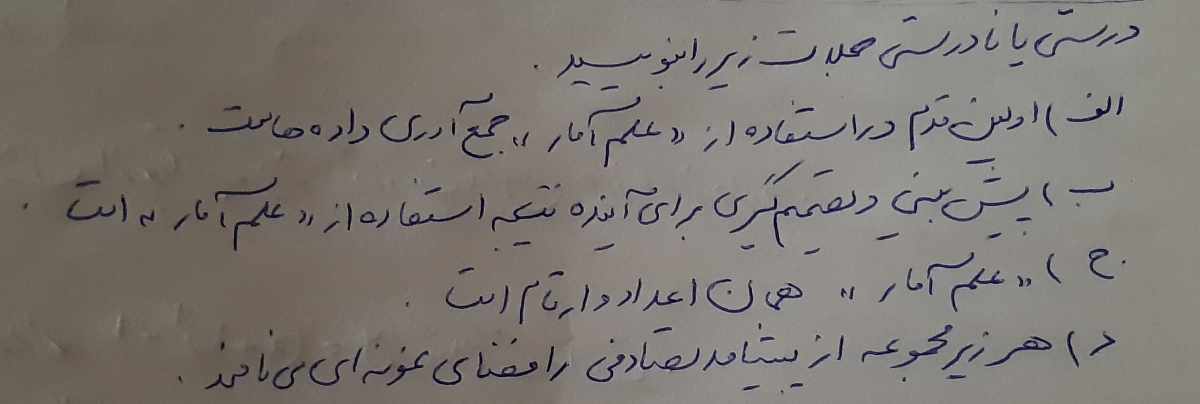 درستی یا نادرستی جملات زیر را بنویسید .
الف ) اولین قدم در استفاده از « علم آمار » جمع آوری داده هاست .
ب ) پیش بینی و تصمیم گیری برای آینده نتیجه استفاده از « علم آمار » است .
ج ) « علم آمار » همان اعداد و ارقام است .
د ) هر زیر مجموعه از پیشامد تصادفی را فضای نمونه ای می نامند .